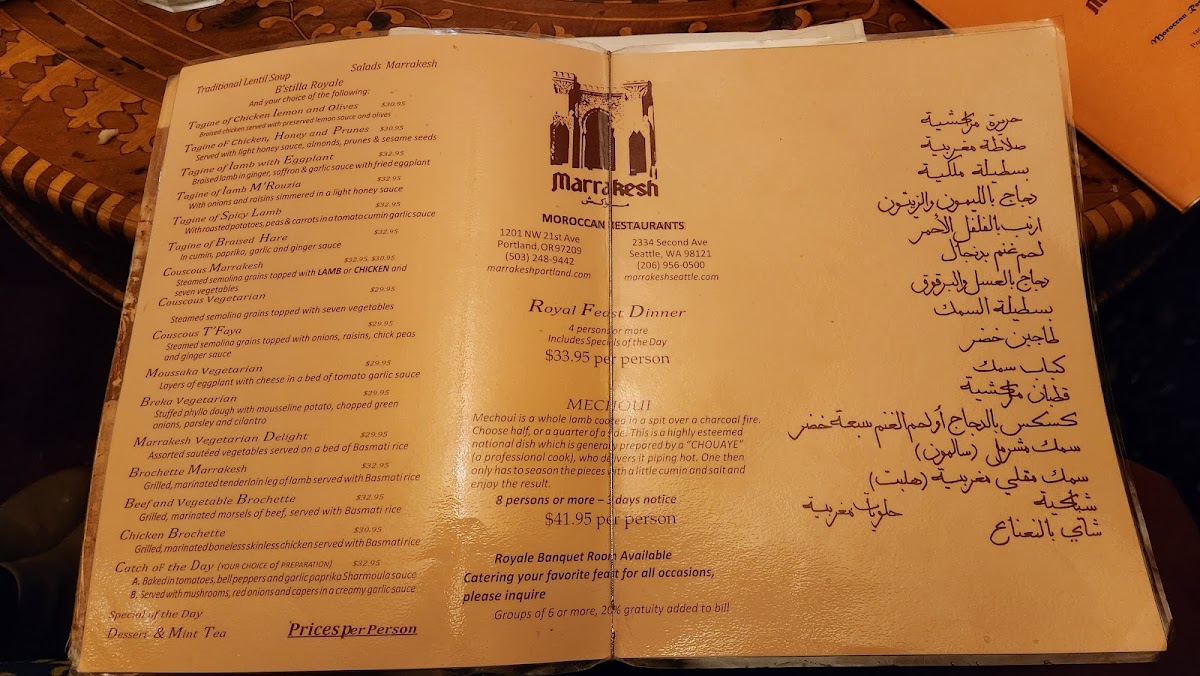 Traditional Lentil Soup
Salads Marrakesh
B'stilla Royale
And your choice of the following:
Tagine of Chicken lemon and Olives $30.95
Braised chicken served with preserved lemon sauce and olives
Tagine of Chicken, Honey and Prunes $30.95
Served with light honey sauce, almonds, prunes & sesame seeds
Tagine of lamb with Eggplant $32.95
Braised lamb in ginger, saffron & garlic sauce with fried eggplant
Tagine of lamb M'Rouzia $32.95
With onions and raisins simmered in a light honey sauce
Tagine of Spicy Lamb $32.95
With roasted potatoes, peas & carrots in a tomato cumin garlic sauce
Tagine of Braised Hare $32.95
In cumin, paprika, garlic and ginger sauce
Couscous Marrakesh $32.95, $30.95
Steamed semolina grains topped with LAMB or CHICKEN and
seven vegetables
Couscous Vegetarian $29.95
Steamed semolina grains topped with seven vegetables
Couscous T'Faya $29.95
Steamed semolina grains topped with onions, raisins, chick peas
and ginger sauce
Moussaka Vegetarian $29.95
Layers of eggplant with cheese in a bed of tomato garlic sauce
Breka Vegetarian $29.95
Stuffed phyllo dough with mousseline potato, chopped green
onions, parsley and cilantro
Marrakesh Vegetarian Delight $29.95
Assorted sautéed vegetables served on a bed of Basmati rice
Brochette Marrakesh $32.95
Grilled, marinated tenderloin leg of lamb served with Basmati rice
Beef and Vegetable Brochette $32.95
Grilled, marinated morsels of beef, served with Basmati rice
Chicken Brochette $30.95
Grilled, marinated boneless skinless chicken served with Basmati rice
Catch of the Day (YOUR CHOICE of PREPARATION) $32.95
A. Baked in tomatoes, bell peppers and garlic paprika Sharmoula sauce
B. Served with mushrooms, red onions and capers in a creamy garlic sauce
Special of the Day
Dessert & Mint Tea
Prices per Person
Marrakesh
مراكش
MOROCCAN RESTAURANTS
1201 NW 21st Ave
Portland, OR97209
(503) 248-9442
marrakeshportland.com
2334 Second Ave
Seattle, WA 98121
(206) 956-0500
marrakeshseattle.com
Royal Feast Dinner
4 persons or more
Includes Specials of the Day
$33.95 per person
MECHOUI
Mechoui is a whole lamb cooked in a spit over a charcoal fire.
Choose half, or a quarter of a side. This is a highly esteemed
national dish which is generally prepared by a "CHOUAYE"
(a professional cook), who delivers it piping hot. One then
only has to season the pieces with a little cumin and salt and
enjoy the result.
8 persons or more – 3 days notice
$41.95 per person
Royale Banquet Room Available
Catering your favorite feast for all occasions,
please inquire
Groups of 6 or more, 20% gratuity added to bill
حريرة مراكشية
صلاطة مغربية
بسطيلة ملكية
دجاج بالليمون والزيتون
ارنب بالفلفل الأحمر
لحم غنم بدنجال
دجاج بالعسل والبرقوق
بسطيلة السمك
طاجين خضر
كباب سمك
قطبان مراكشية
كسكس بالدجاج أو لحم الغنم سبعة خضر
سمك مشرمل (سالمون)
سمك مقلي مغربية (هلبت)
شباكية
حلويات مغربية
شاي بالنعناع